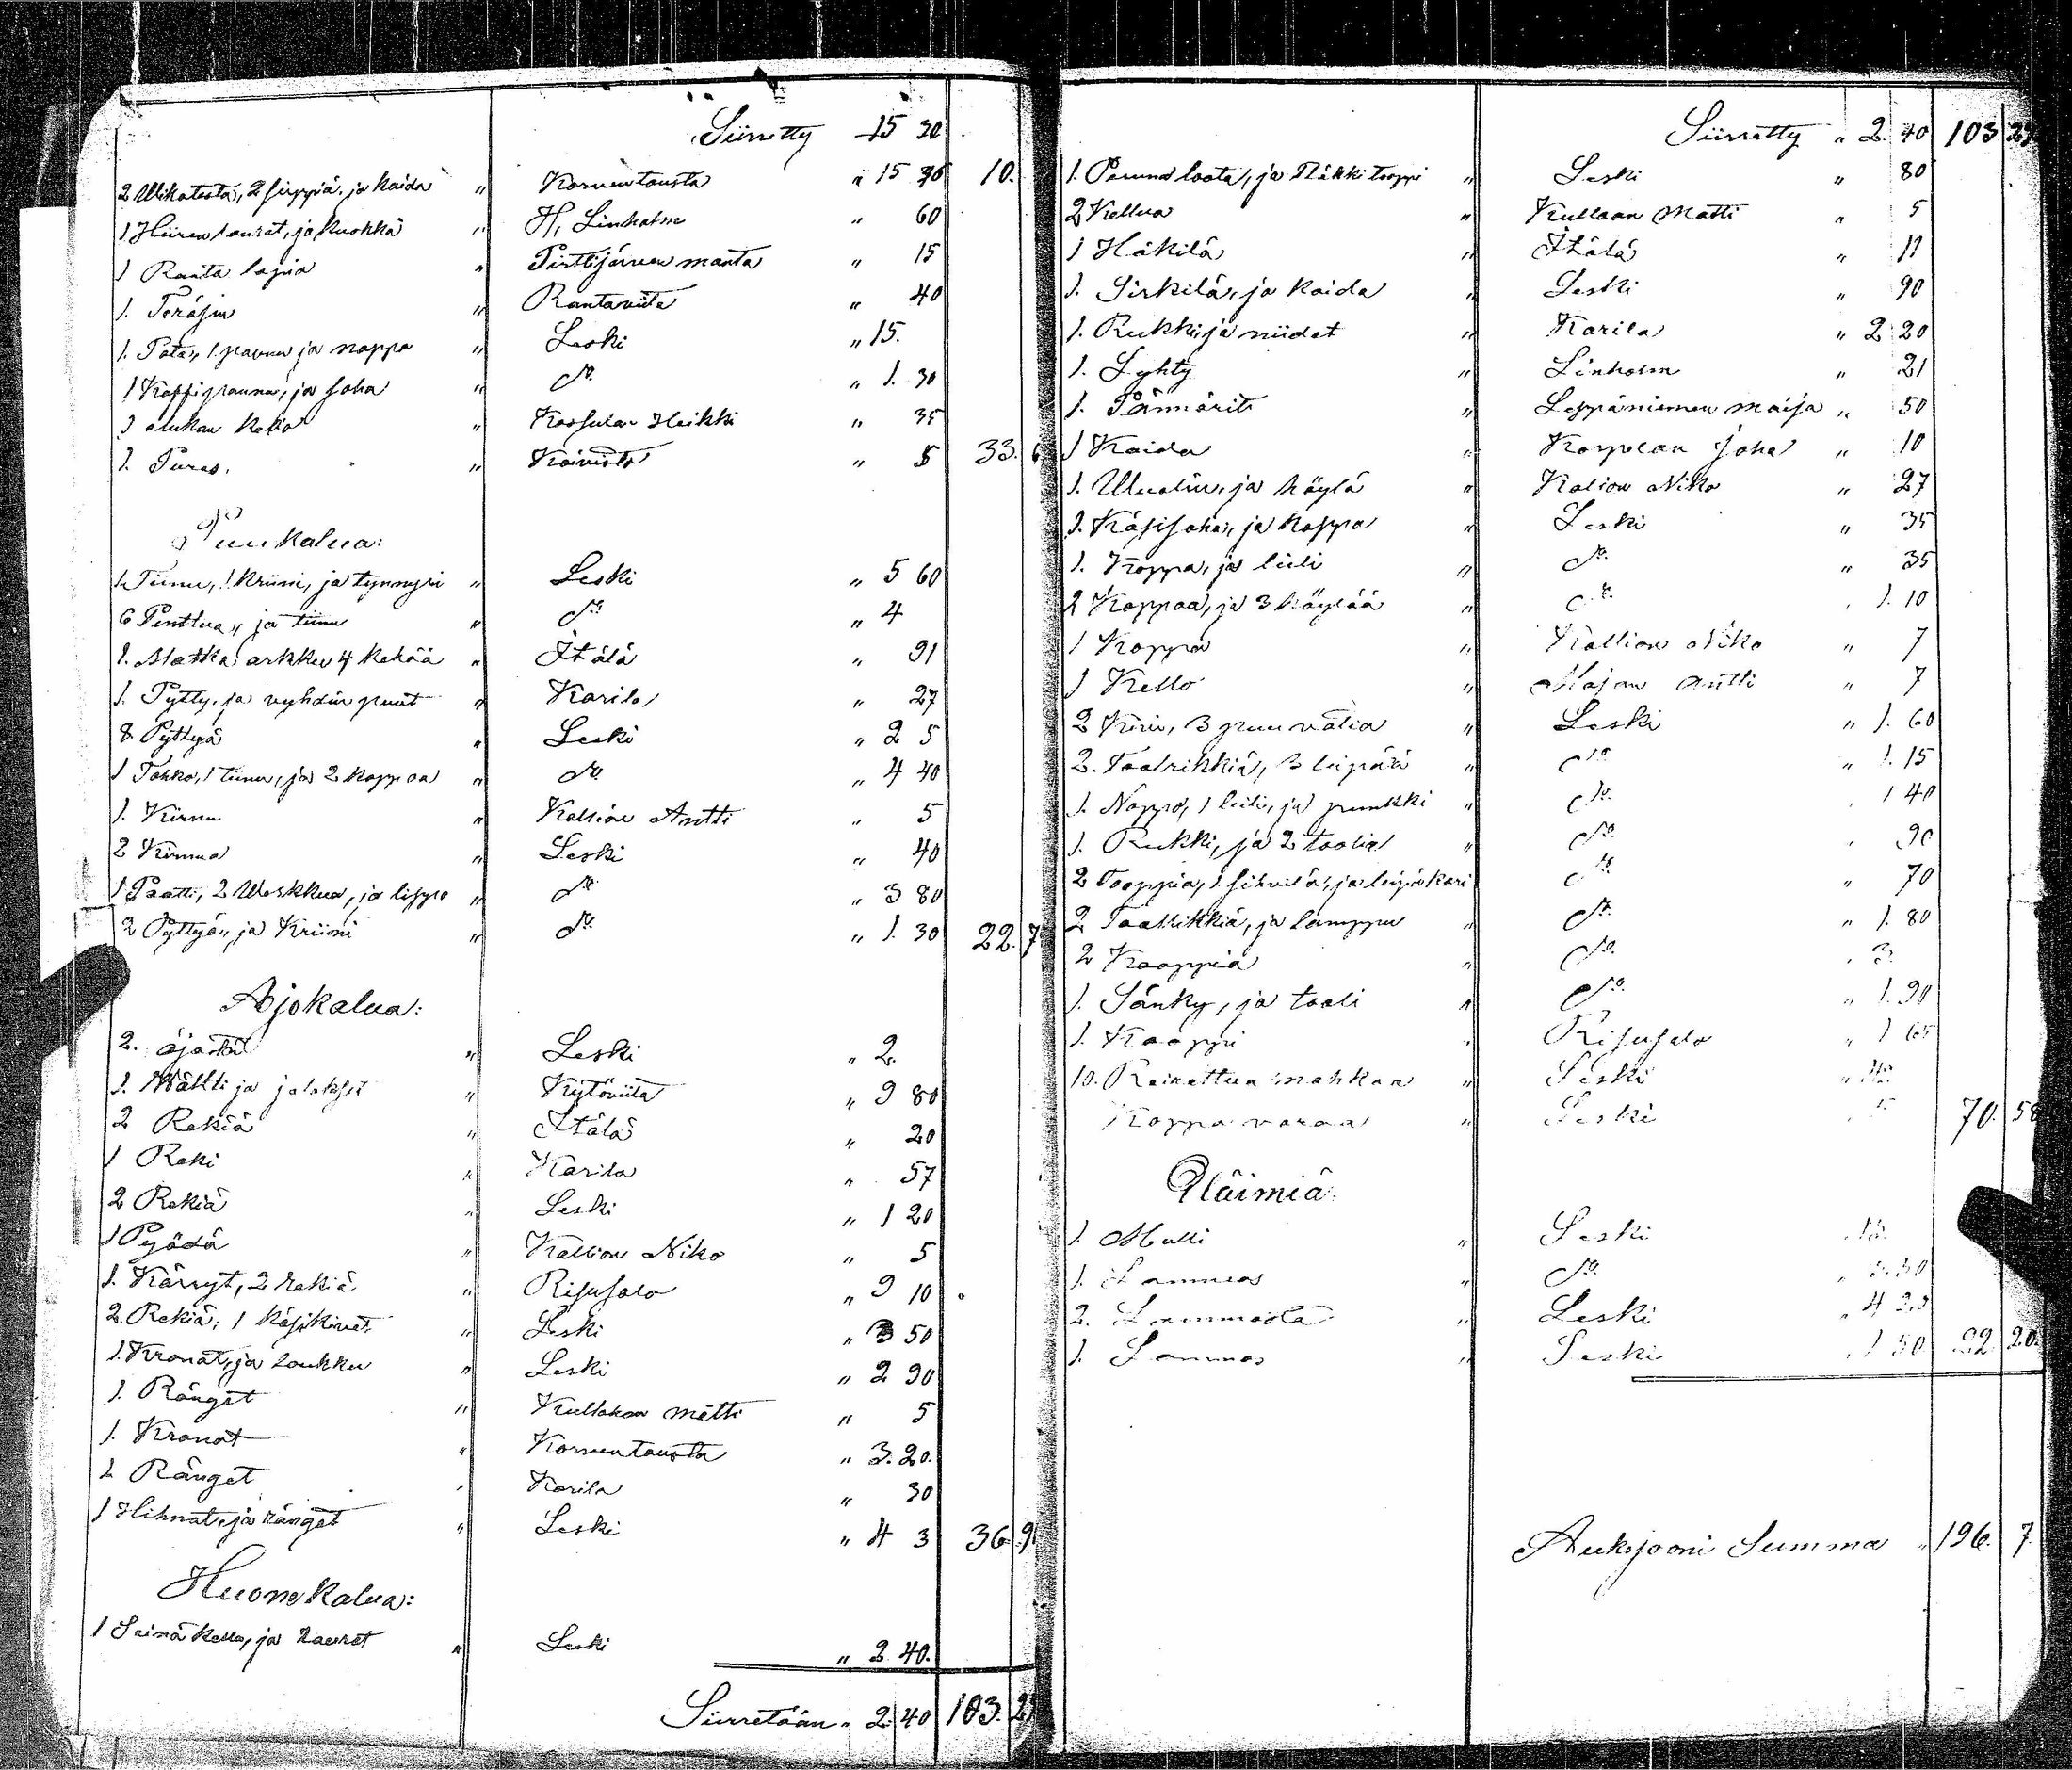 Siirretty 15 30
2 Wikatesta, 2 sirppiä, ja kaida " Korventausta " 15 30 10.
1 Hiiren lourat, ja kuokka " H, Linholm " 60
1 Rauta lapio " Pirttijärven manta " 15
1. Poräsin " Rantaviita " 40
1. Pata, 1 pannu ja nappo " Leski " 15.
1 Kaffipannu, ja saha " do " 1. 30
1 alukau keko " Kossulan Heikki " 35
1. Puras. " Koivisto " 5 33.
Puukalua:
1. Tiinu, 1 kriini, ja tynnyri " Leski " 5 60
6 Penttua, ja tiinu " do " 4
1. Matka arkku 4 kehää " Itälä " 91
1. Pytty, ja vyhdin puut " Karila " 27
8. Pyttyä " Leski " 2 5
1 Tahko, 1 tiinu, ja 2 koppaa " do " 4 40
1. Kirnu " Kallion Antti " 5
2 Kirnua " Leski " 40
1 Paatti, 2 Weskkua, ja lippo " do " 3 80
2 Pyttyä, ja Kriini " do " 1. 30 22. 7
Ajokalua:
2. äjestä " Leski " 2.
1. Wältti ja jalakset " Kytöviita " 9 80
2 Rekiä " Itälä " 20
1 Reki " Karila " 57
2 Rekiä " Leski " 1 20
1 Pyödä " Kallion Niko " 5
1. Kärryt, 2 rekiä " Risusalo " 9 10
2. Rekiä, 1 käsikivet " Leski " 3 50
1. Kranat, ja loukku " Leski " 2 90
1. Ränget " Kullakan Matti " 5
1. Kranat " Korventausta " 3. 20.
2 Ränget " Karila " 30
1 Hihnat, ja ränget " Leski " 4 3 36. 9
Huonekalua:
1 Seinäkello, ja raurat " Leski " 2 40.
Siirretään " 2 40 103. 2
Siirretty " 2. 40 103
1. Perund loota, ja Pläkki tooppi " Leski " 80
2 Kellua " Kullaan Matti " 5
1 Häkilä " Itälä " 11
1. Sirkilä, ja kaida " Leski " 90
1. Rukki, ja niidet " Karila " 2 20
1. Lyhty " Linholm " 21
1. Pännärit " Leppäniemen Maija " 50
1 Kaida " Korpelan Juha " 10
1. Wuolin, ja höylä " Kalion Niko " 27
1. Käsisaha, ja koppa " Leski " 35
1. Koppa, ja leili " do " 35
2 Koppaa, ja 3 höylää " do " 1. 10
1 Koppa " Kallion Niko " 7
1 Kello " Majan Antti " 7
2 Kiriv, 3 puu vatia " Leski " 1. 60
2. Taalrikkiä, 3 leipää " do " 1. 15
1. Nappo, 1 leili, ja punkki " do " 1 40
1. Rukki, ja 2 toolia " do " 90
2 Tooppia, 1 sihvilä, ja leipäkari do " 70
2 Taallikkiä, ja lamppu " do " 1. 80
2 Kaappia " do " 3.
1. Sänky, ja tooli " do " 1. 90
1. Kaappi " Risusalo " 1 65
10. Reikettua nahkaa " Leski "
Koppa varaa " Leski 70. 58
Eläimiä:
1. Mulli " Leski
1. Lammas " do
2. Lammasta " Leski " 4
1. Lammas " Leski " 1 50 22 20.
Auksjooni Summa " 196. 7